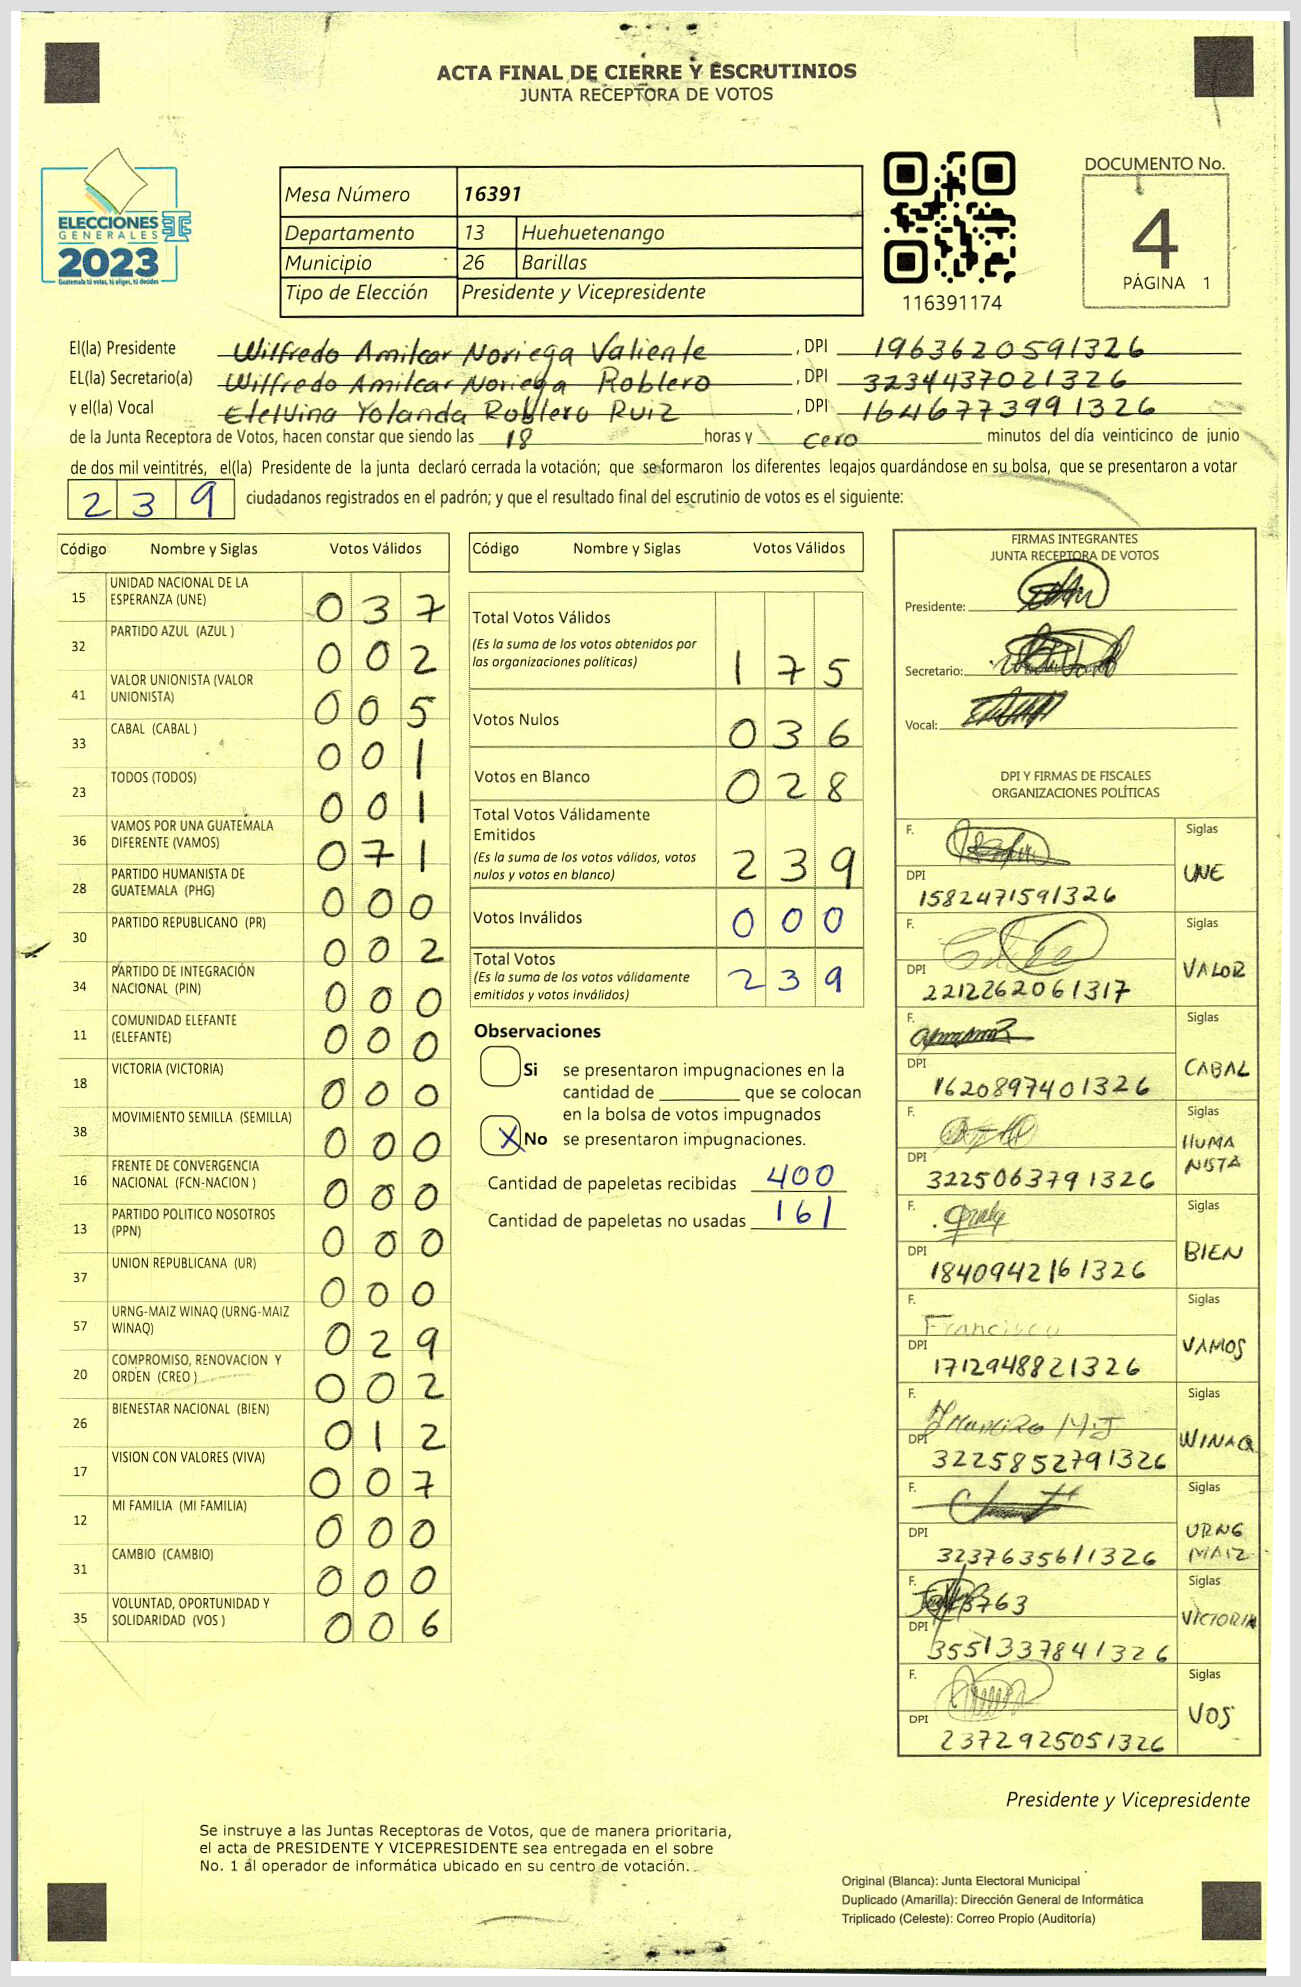 ACTA FINAL DE CIERRE Y ESCRUTINIOS
JUNTA RECEPTORA DE VOTOS
ELECCIONES
GENERALES
2023
Guatemala tú votas, tú eliges, tú decides
Mesa Número 16391
Departamento 13 Huehuetenango
Municipio 26 Barillas
Tipo de Elección Presidente y Vicepresidente
116391174
DOCUMENTO No.
4
PÁGINA 1
El(la) Presidente Wilfredo Amilcar Noriega Valiente, DPI 1963620591326
EL(la) Secretario(a) Wilfredo Amilcar Noriega Roblero, DPI 3234437021326
y el(la) Vocal Etelvina Yolanda Roblero Ruiz, DPI 1646773991326
de la Junta Receptora de Votos, hacen constar que siendo las 18 horas y cero minutos del día veinticinco de junio
de dos mil veintitrés, el(la) Presidente de la junta declaró cerrada la votación; que se formaron los diferentes legajos quardándose en su bolsa, que se presentaron a votar
239 ciudadanos registrados en el padrón; y que el resultado final del escrutinio de votos es el siguiente:
Código Nombre y Siglas Votos Válidos
15 UNIDAD NACIONAL DE LA ESPERANZA (UNE) 037
32 PARTIDO AZUL (AZUL ) 002
41 VALOR UNIONISTA (VALOR UNIONISTA) 005
33 CABAL (CABAL ) 001
23 TODOS (TODOS) 001
36 VAMOS POR UNA GUATEMALA DIFERENTE (VAMOS) 071
28 PARTIDO HUMANISTA DE GUATEMALA (PHG) 000
30 PARTIDO REPUBLICANO (PR) 002
34 PARTIDO DE INTEGRACIÓN NACIONAL (PIN) 000
11 COMUNIDAD ELEFANTE (ELEFANTE) 000
18 VICTORIA (VICTORIA) 000
38 MOVIMIENTO SEMILLA (SEMILLA) 000
16 FRENTE DE CONVERGENCIA NACIONAL (FCN-NACION ) 000
13 PARTIDO POLITICO NOSOTROS (PPN) 000
37 UNION REPUBLICANA (UR) 000
57 URNG-MAIZ WINAQ (URNG-MAIZ WINAQ) 029
20 COMPROMISO, RENOVACION Y ORDEN (CREO ) 002
26 BIENESTAR NACIONAL (BIEN) 012
17 VISION CON VALORES (VIVA) 007
12 MI FAMILIA (MI FAMILIA) 000
31 CAMBIO (CAMBIO) 000
35 VOLUNTAD, OPORTUNIDAD Y SOLIDARIDAD (VOS ) 006
Código Nombre y Siglas Votos Válidos
Total Votos Válidos
(Es la suma de los votos obtenidos por
las organizaciones políticas) 175
Votos Nulos 036
Votos en Blanco 028
Total Votos Válidamente
Emitidos
(Es la suma de los votos válidos, votos
nulos y votos en blanco) 239
Votos Inválidos 000
Total Votos
(Es la suma de los votos válidamente
emitidos y votos inválidos) 239
Observaciones
Si se presentaron impugnaciones en la
cantidad de ________ que se colocan
en la bolsa de votos impugnados
X No se presentaron impugnaciones.
Cantidad de papeletas recibidas 400
Cantidad de papeletas no usadas 161
FIRMAS INTEGRANTES
JUNTA RECEPTORA DE VOTOS
Presidente:
Secretario:
Vocal:
DPI Y FIRMAS DE FISCALES
ORGANIZACIONES POLÍTICAS
F. Siglas
DPI 1582471591326 UNE
F. Siglas
DPI 2212262061317 VALOR
F. Siglas
DPI 1620897401326 CABAL
F. Siglas
DPI 3225063791326 HUMANISTA
F. Siglas
DPI 1840942161326 BIEN
F. Francisco Siglas
DPI 1712948821326 VAMOS
F. Siglas
DPI 3225852791326 WINAQ
F. Siglas
DPI 3237635611326 URNG MAIZ
F. Siglas
DPI 3551337841326 VICTORIA
F. Siglas
DPI 2372925051326 VOS
Presidente y Vicepresidente
Se instruye a las Juntas Receptoras de Votos, que de manera prioritaria,
el acta de PRESIDENTE Y VICEPRESIDENTE sea entregada en el sobre
No. 1 ál operador de informática ubicado en su centro de votación.
Original (Blanca): Junta Electoral Municipal
Duplicado (Amarilla): Dirección General de Informática
Triplicado (Celeste): Correo Propio (Auditoría)